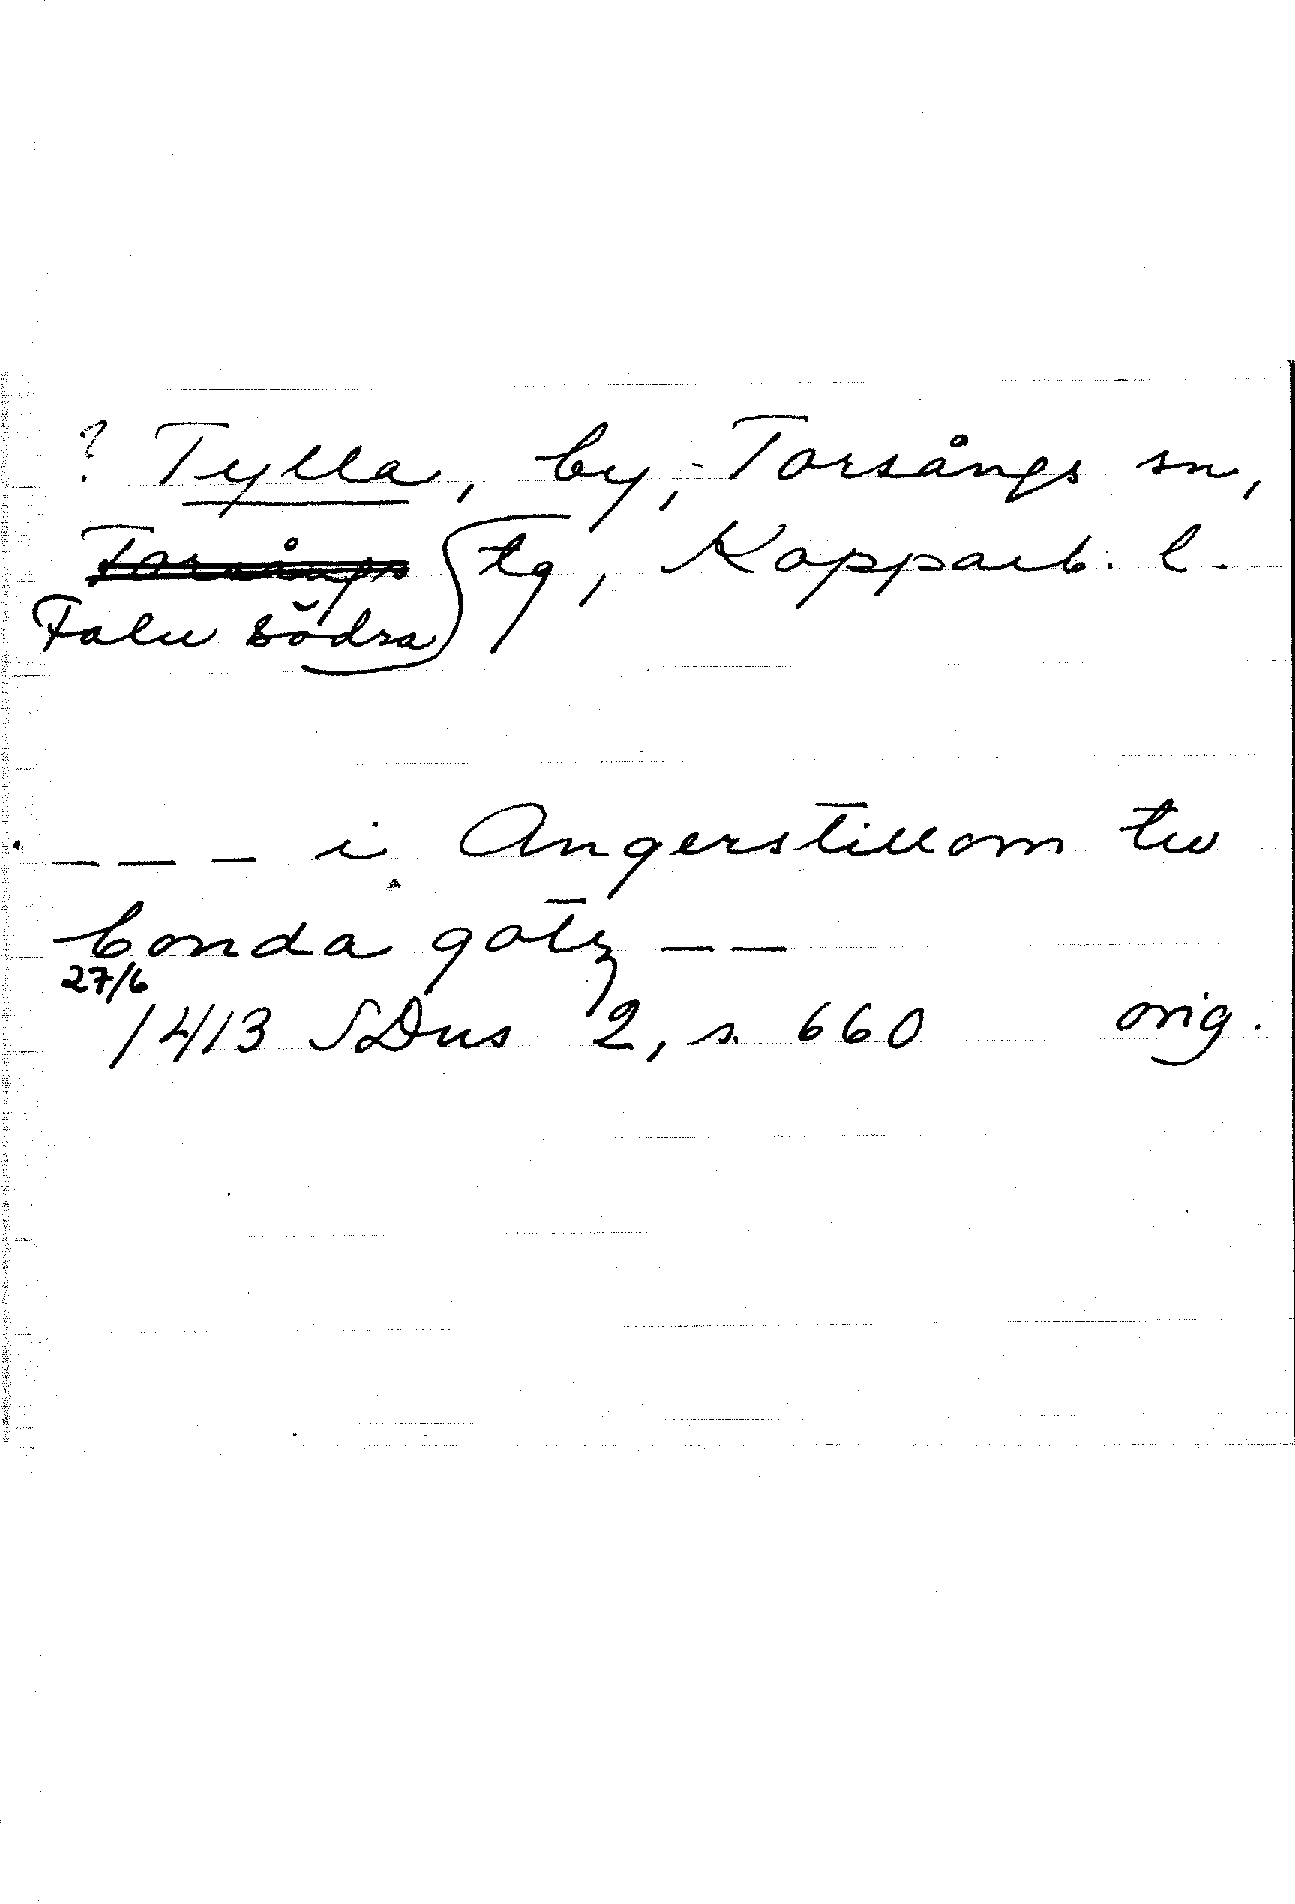 ? Tylla, by, Torsångs sn,
Torsångs tg, Kopparb. l.
Falu södra
- - - i Angerstillom tw
bonda gotz - -
27/6
1413 SDns 2, s. 660 orig.